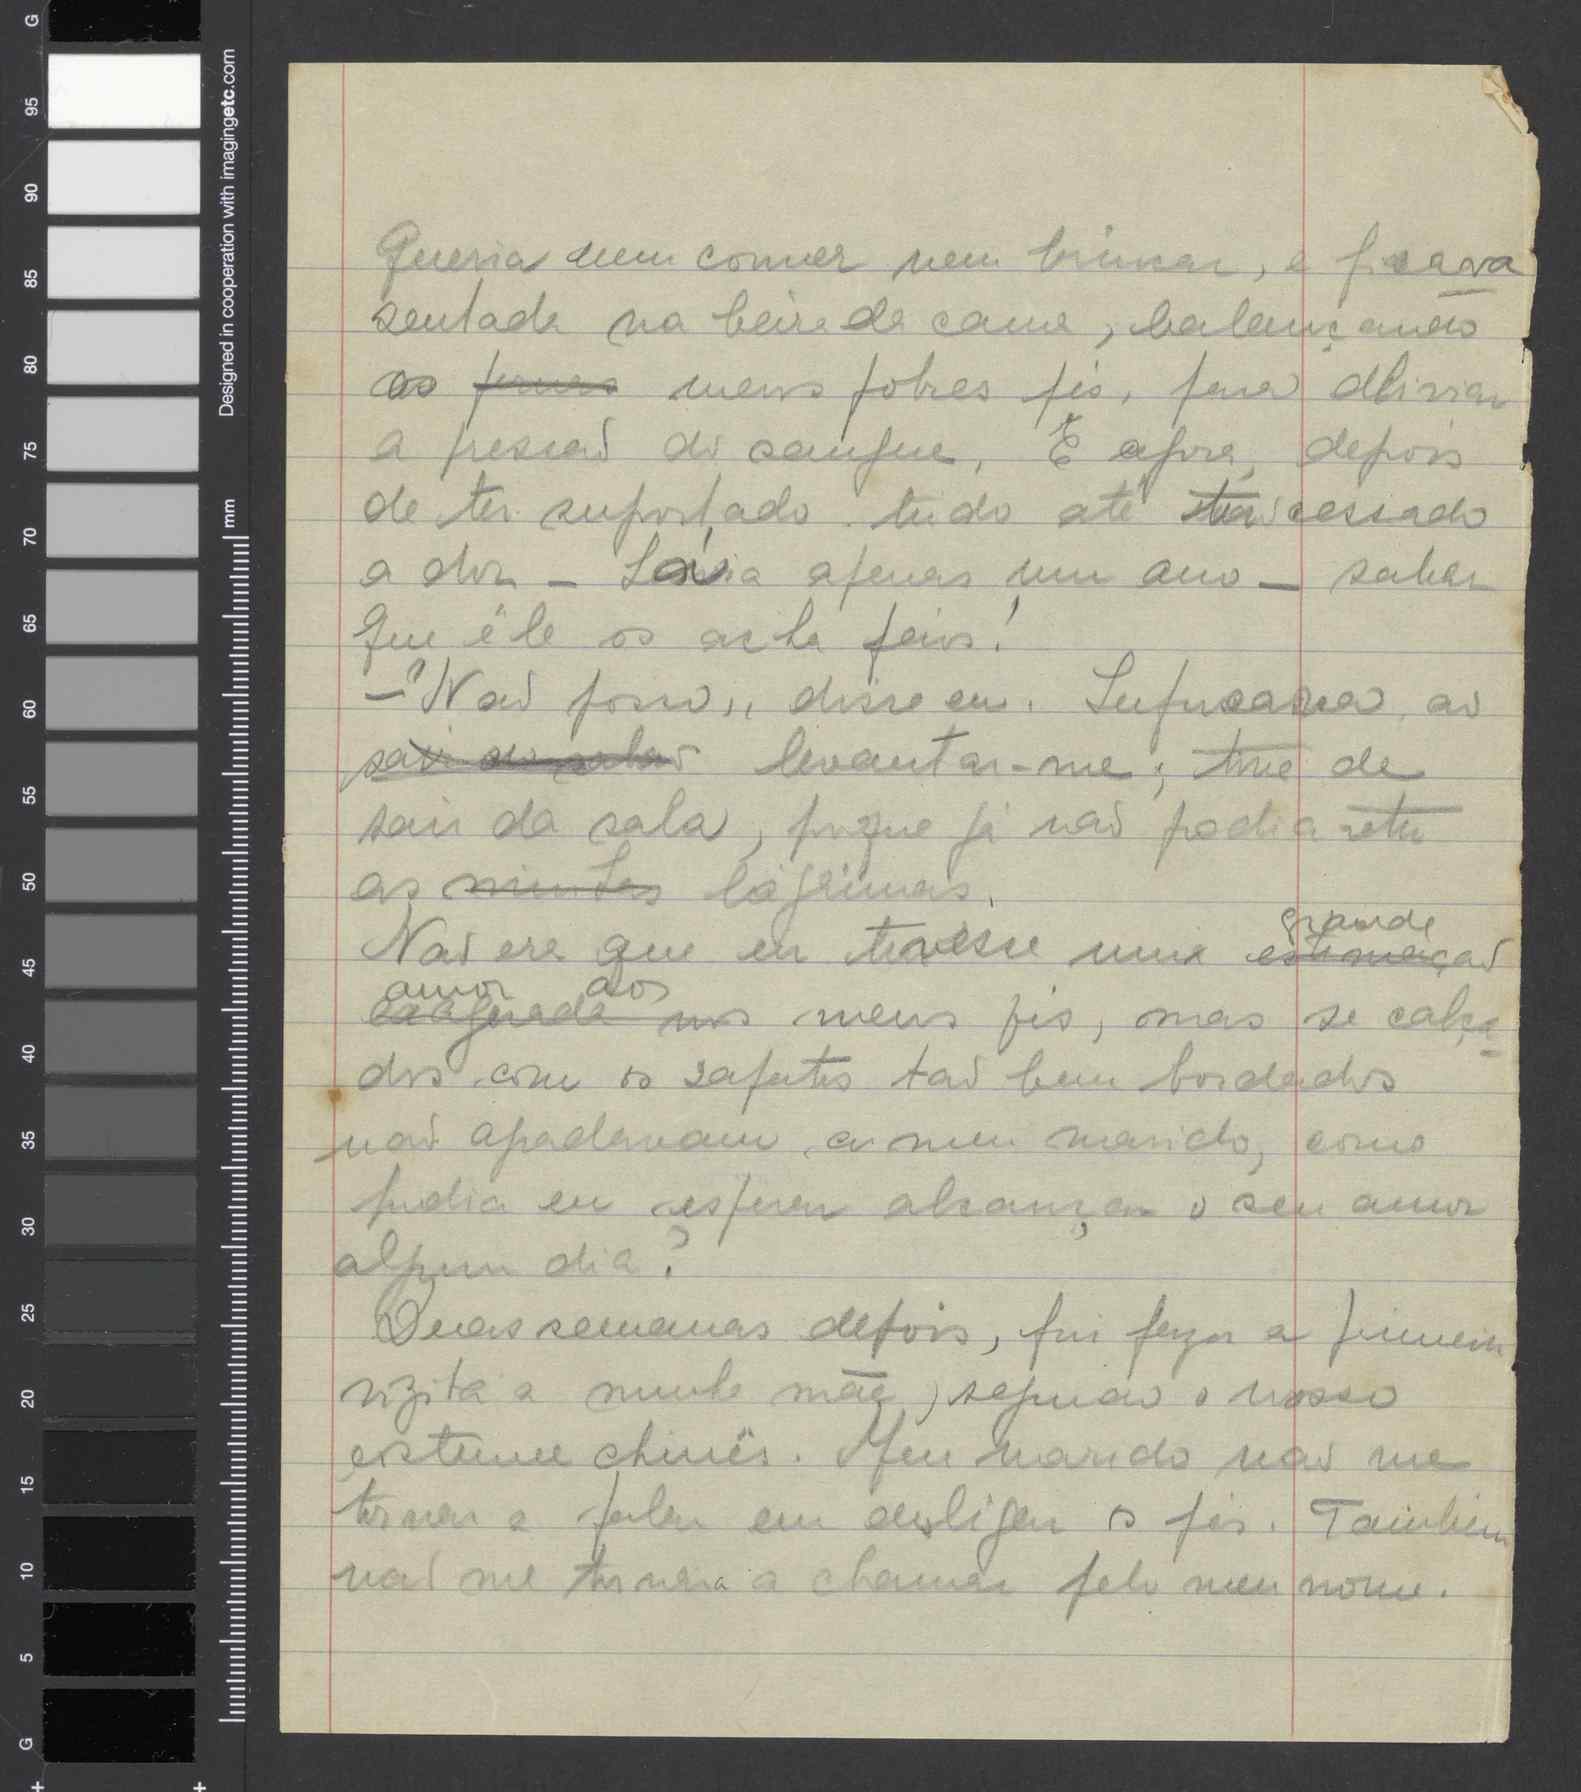 Queria nem comer nem brincar, e ficava
sentada na beira da cama, balançando
os pernas meus pobres pés, para aliviar
a pressão do sangue. E agora, depois
de ter suportado tudo até ter cessado
a dor – havia apenas um ano – saber
que êle os acha feios!
– "Não posso", disse eu. Sufocava, ao
levantar-me; tive de
sair da sala, porque já não podia reter
as minhas lágrimas.
Não era que eu tivesse uma grande estimação
amor aos exagerada nos meus pés, mas se calça
dos com os sapatos tão bem bordados
não agradavam a meu marido, como
podia eu esperar alcançar o seu amor
algum dia?
Duas semanas depois, fui fazer a primeira
vizita a minha mãe, segundo o nosso
costume chinês. Meu marido não me
tornou a falar em desligar os pés. Também
não me tornara a chamar pelo meu nome.
G
95
90
85
80
75
70
65
60
55
50
45
40
35
30
25
20
15
10
5
G
mm
Designed in cooperation with imagingetc.com